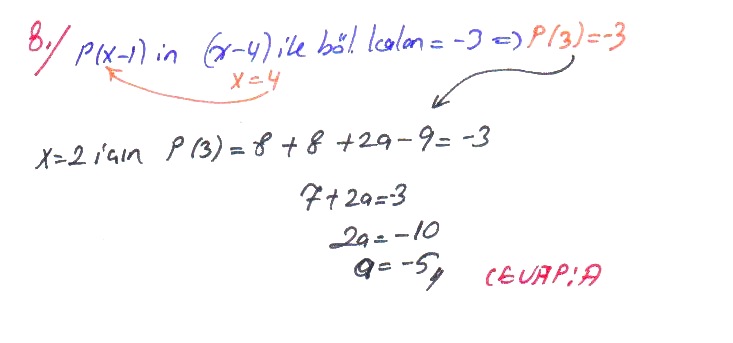 8./ P(x-1) in (x-4) ile böl. kalan = -3 => P(3)=-3
x=4
x=2 için P(3) = 8 + 8 + 2a - 9 = -3
7 + 2a = -3
2a = -10
a = -5//
CEVAP: A